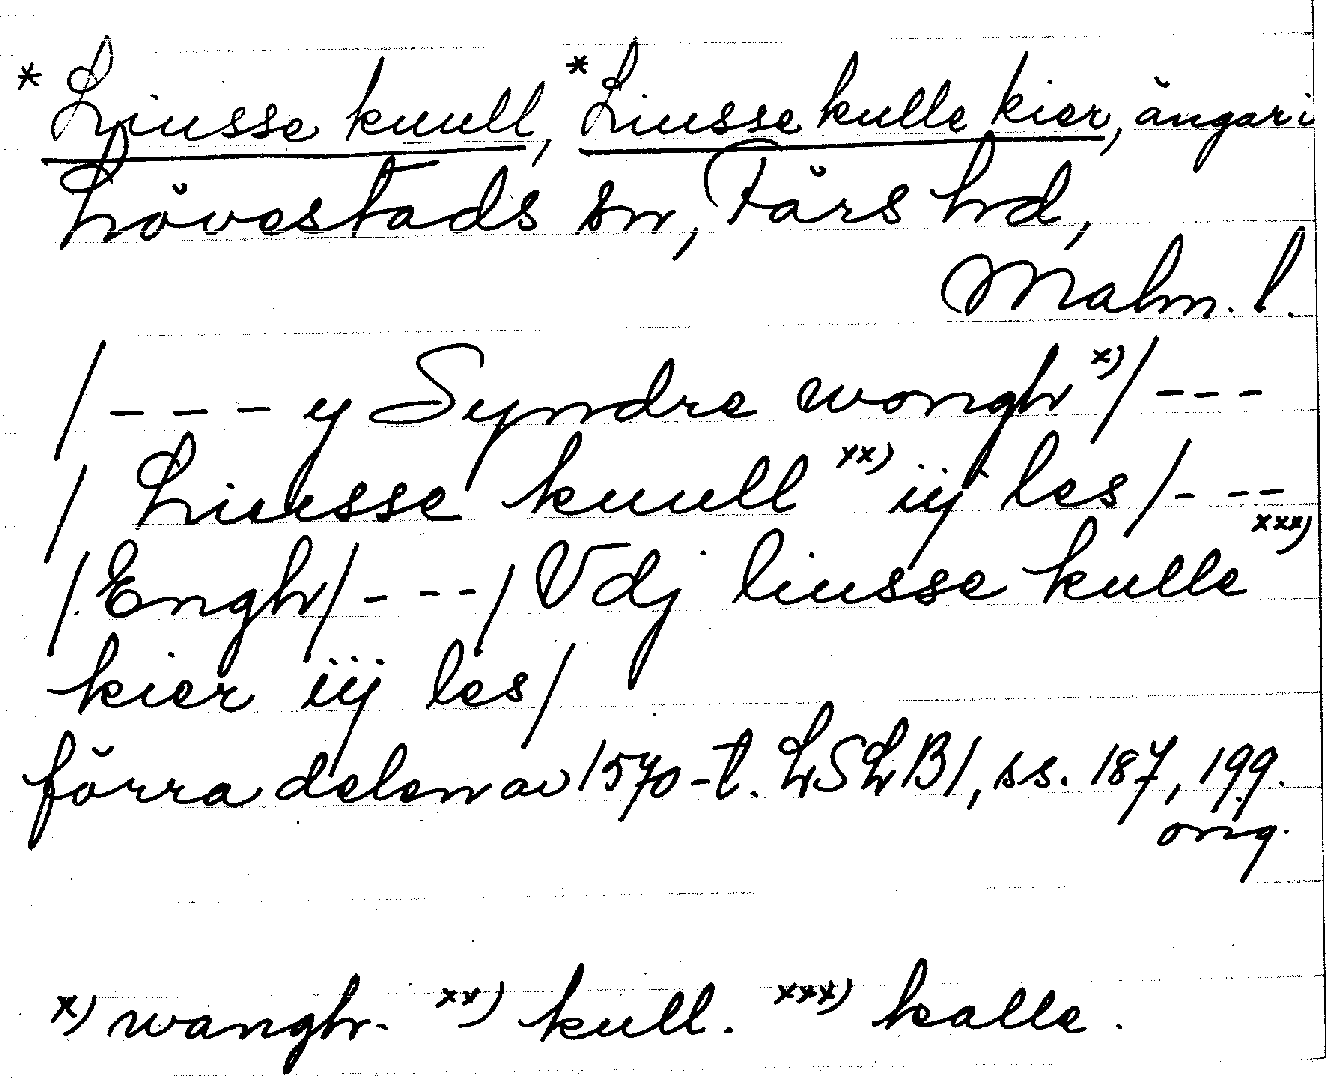 * Liusse kuull, * Liusse kulle kier, ängar i
Lövestads sn, Färs hd,
Malm. l.
/ - - - y Syndre wongh x) / - - -
/ Liusse kuull xx) iij les / - - -
/ Engh / - - - / Vdj liusse kulle xxx)
kier iij les /
förra delen av 1570-t. LSLB 1, ss. 187, 199.
orig.
x) wangh. xx) kull. xxx) kalle.